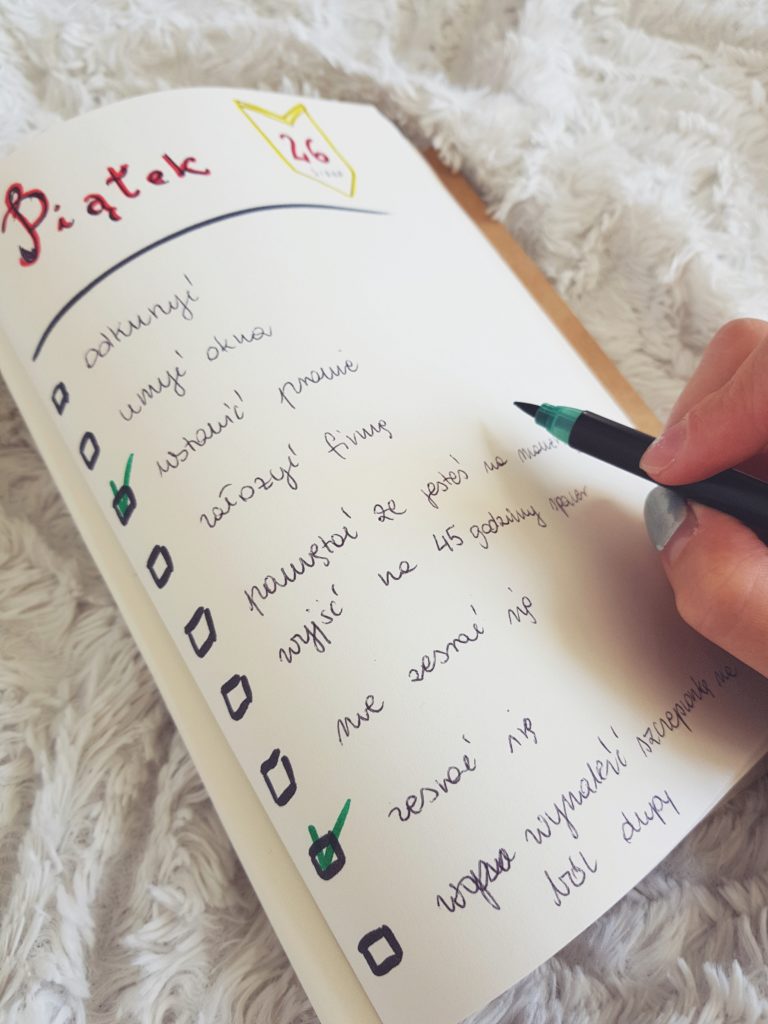 Piątek
26
odkurzyć
umyć okna
wstawić pranie
założyć firmę
pamiętać że jesteś na
wyjść na 45 godzinny spacer
nie zesrać się
zesrać się
wynaleźć szczepionkę na
ból dupy